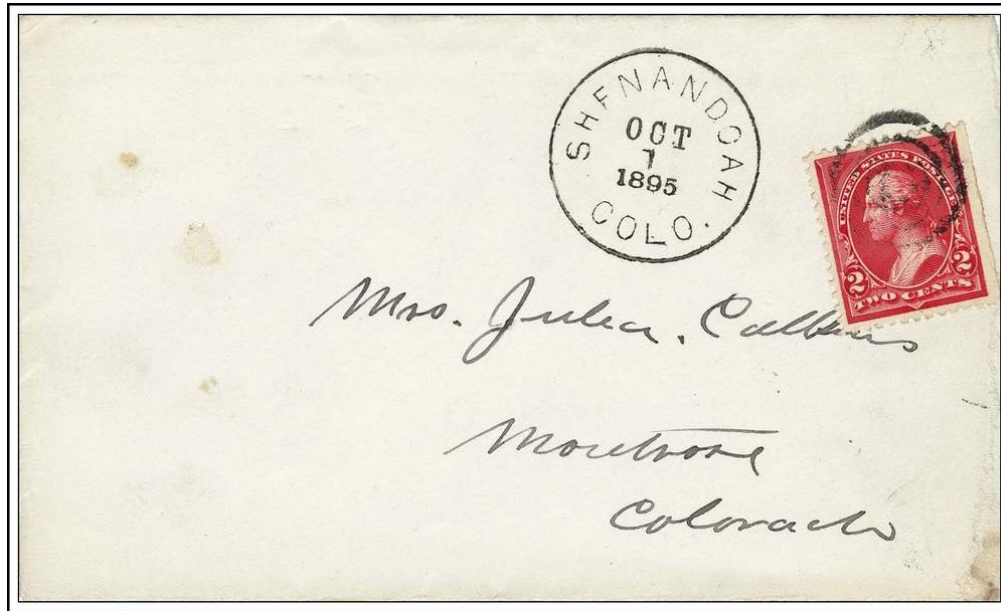 SHENANDOAH
OCT
7
1895
COLO.
UNITED STATES POSTAGE
2 2
TWO CENTS
Mrs. Julia. Calkins
Montrose
Colorado